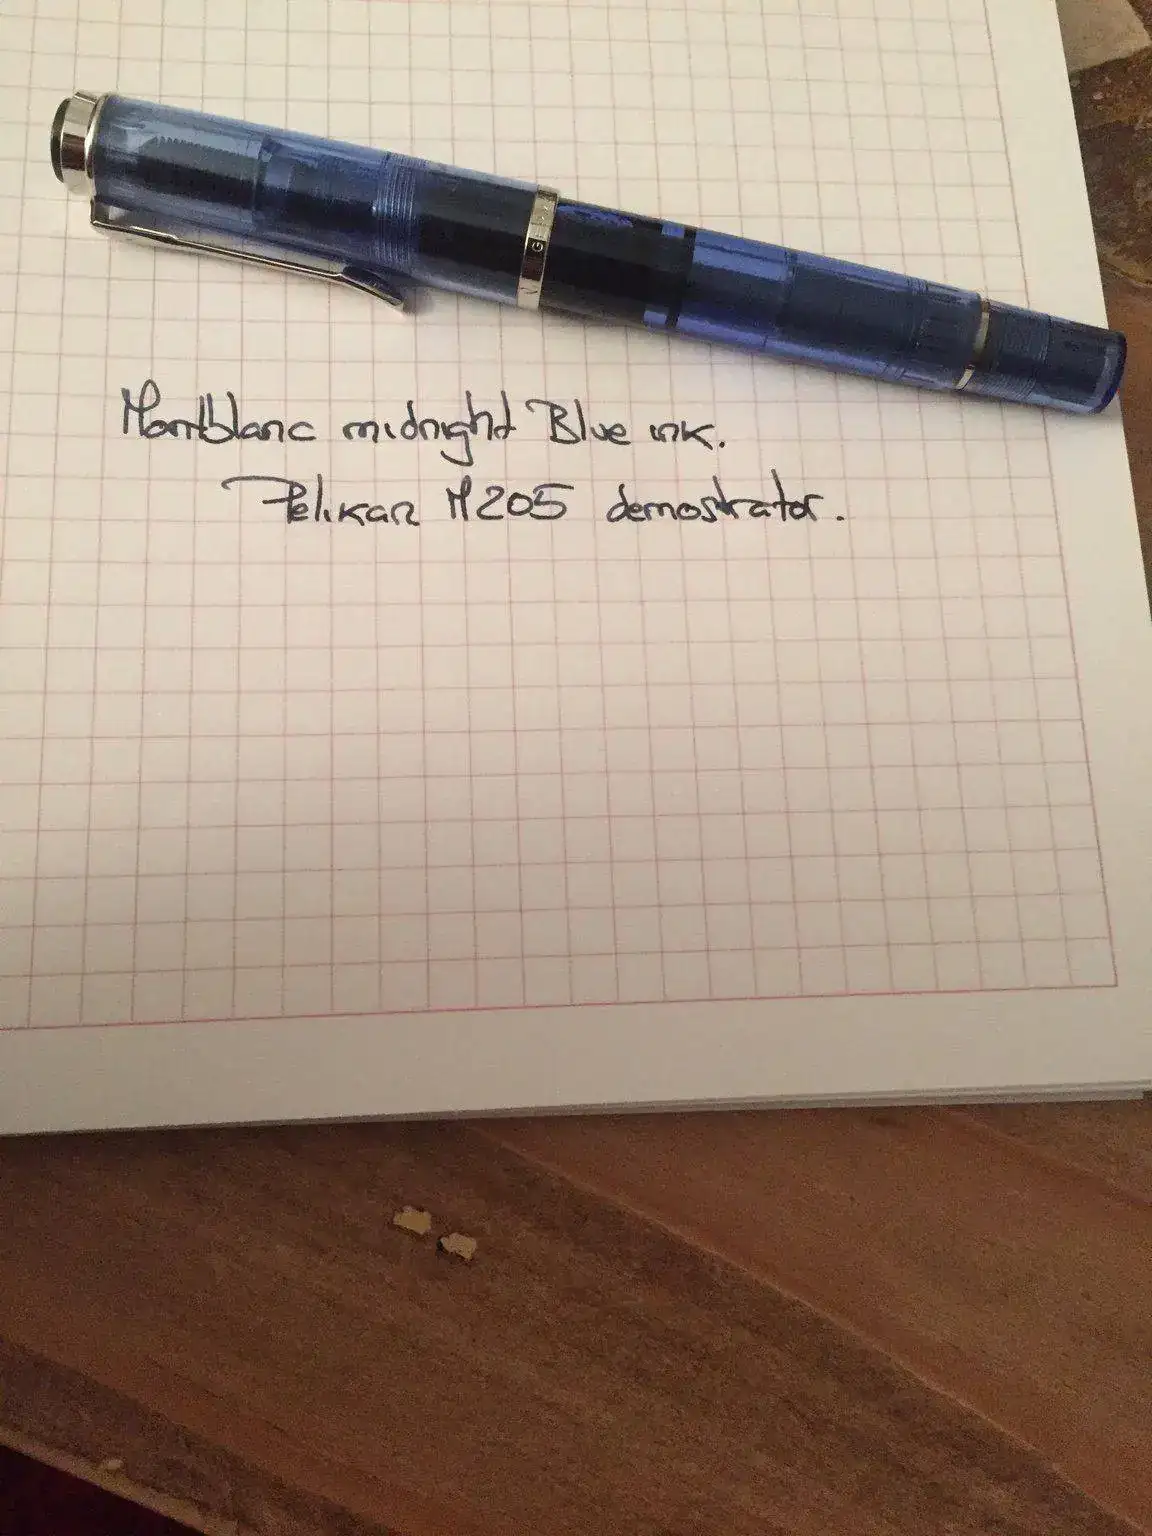 Montblanc midnight Blue ink.
Pelikan M205 demostrator.